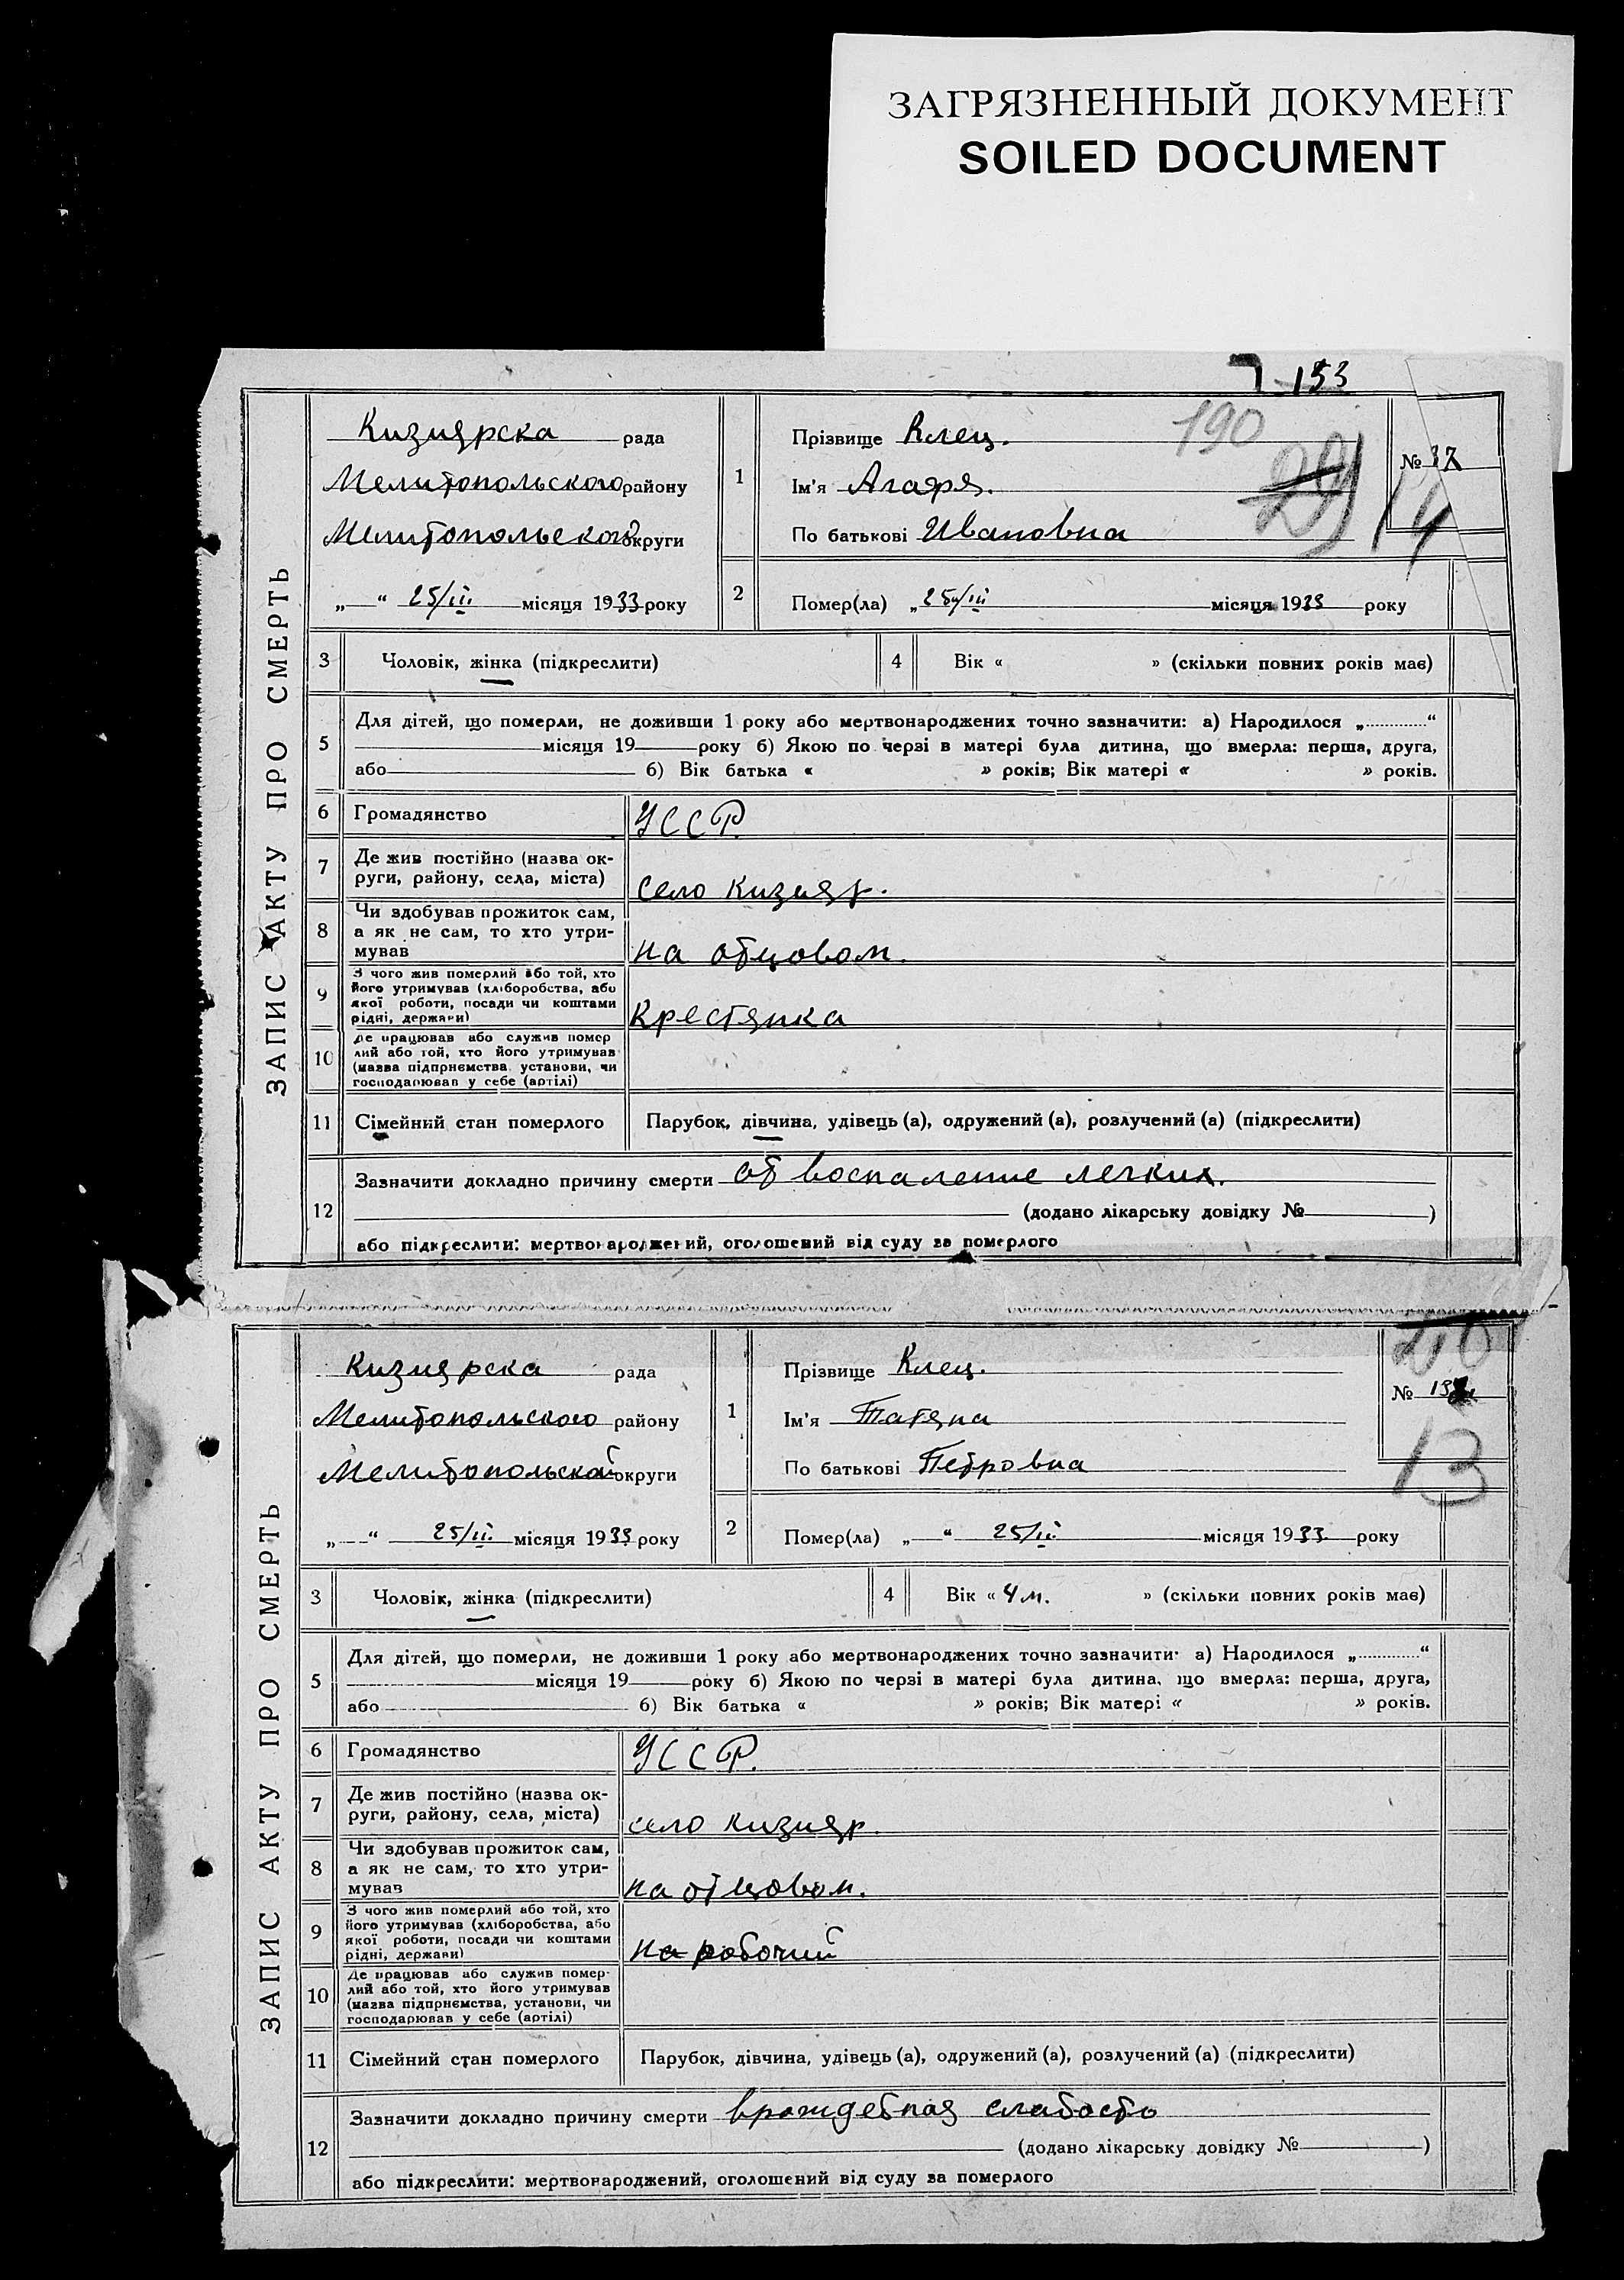 ЗАГРЯЗНЕННЫЙ ДОКУМЕНТ
SOILED DOCUMENT
7-153
190
ЗАПИС АКТУ ПРО СМЕРТЬ
Кизиярска рада
Мелитопольского району
Мелитопольской округи
„ “ 25/III місяця 1933 року
1
Прізвище Клец.
Ім'я Агафя.
По батькові Ивановна
№ 37
14
2
Помер(ла) „25/III місяця 1933 року
3 Чоловік, жінка (підкреслити) 4 Вік « » (скільки повних років має)
5 Для дітей, що померли, не доживши 1 року або мертвонароджених точно зазначити: а) Народилося „ “
місяця 19 року б) Якою по черзі в матері була дитина, що вмерла: перша, друга,
або б) Вік батька « » років; Вік матері « » років.
6 Громадянство УССР.
7 Де жив постійно (назва ок-
руги, району, села, міста) село Кизияр.
8 Чи здобував прожиток сам,
а як не сам, то хто утри-
мував на отцовом.
9 З чого жив померлий або той, хто
його утримував (хліборобства, або
якої роботи, посади чи коштами
рідні, держави) Крестянка
10 Де працював або служив помер
лий або той, хто його утримував
(назва підприємства установи, чи
господарював у себе (артілі)
11 Сімейний стан померлого Парубок, дівчина, удівець (а), одружений (а), розлучений (а) (підкреслити)
12 Зазначити докладно причину смерти от воспаление легких.
(додано лікарську довідку № )
або підкреслити: мертвонароджений, оголошений від суду за померлого
ЗАПИС АКТУ ПРО СМЕРТЬ
Кизиярска рада
Мелитопольского району
Мелитопольской округи
„ “ 25/III місяця 1933 року
1
Прізвище Клец.
Ім'я Татяна
По батькові Петровна
№
13
2
Помер(ла) „ “ 25/III місяця 1933 року
3 Чоловік, жінка (підкреслити) 4 Вік « 4 м. » (скільки повних років має)
5 Для дітей, що померли, не доживши 1 року або мертвонароджених точно зазначити: а) Народилося „ “
місяця 19 року б) Якою по черзі в матері була дитина, що вмерла: перша, друга,
або б) Вік батька « » років; Вік матері « » років.
6 Громадянство УССР.
7 Де жив постійно (назва ок-
руги, району, села, міста) село Кизияр.
8 Чи здобував прожиток сам,
а як не сам, то хто утри-
мував на отцовом.
9 З чого жив померлий або той, хто
його утримував (хліборобства, або
якої роботи, посади чи коштами
рідні, держави) на робочий
10 Де працював або служив помер-
лий або той, хто його утримував
(назва підприємства, установи, чи
господарював у себе (артілі)
11 Сімейний стан померлого Парубок, дівчина, удівець (а), одружений (а), розлучений (а) (підкреслити)
12 Зазначити докладно причину смерти врождетная слабость
(додано лікарську довідку № )
або підкреслити: мертвонароджений, оголошений від суду за померлого